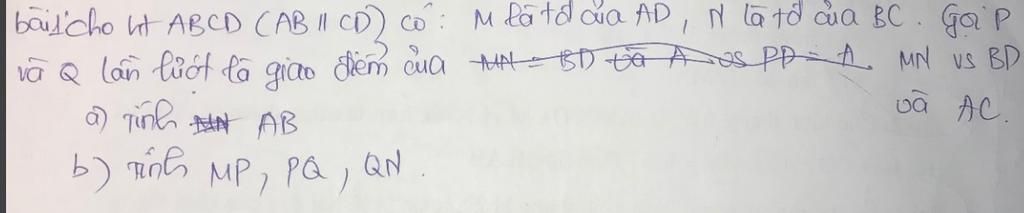 bài1: cho ht ABCD (AB // CD) có: M là tđ của AD, N là tđ của BC. Gọi P
và Q lần lượt là giao điểm của MN = BD và A vs PD = A MN vs BD
và AC.
a) Tính MN AB
b) Tính MP, PQ, QN.